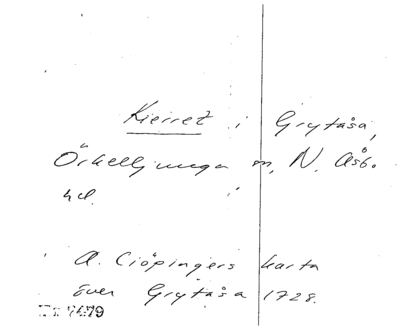 Kierret i Grytåsa,
Örkelljunga sn, N. Åsb.
hd.
A. Ciöpingers karta
över Grytåsa 1728.
7479